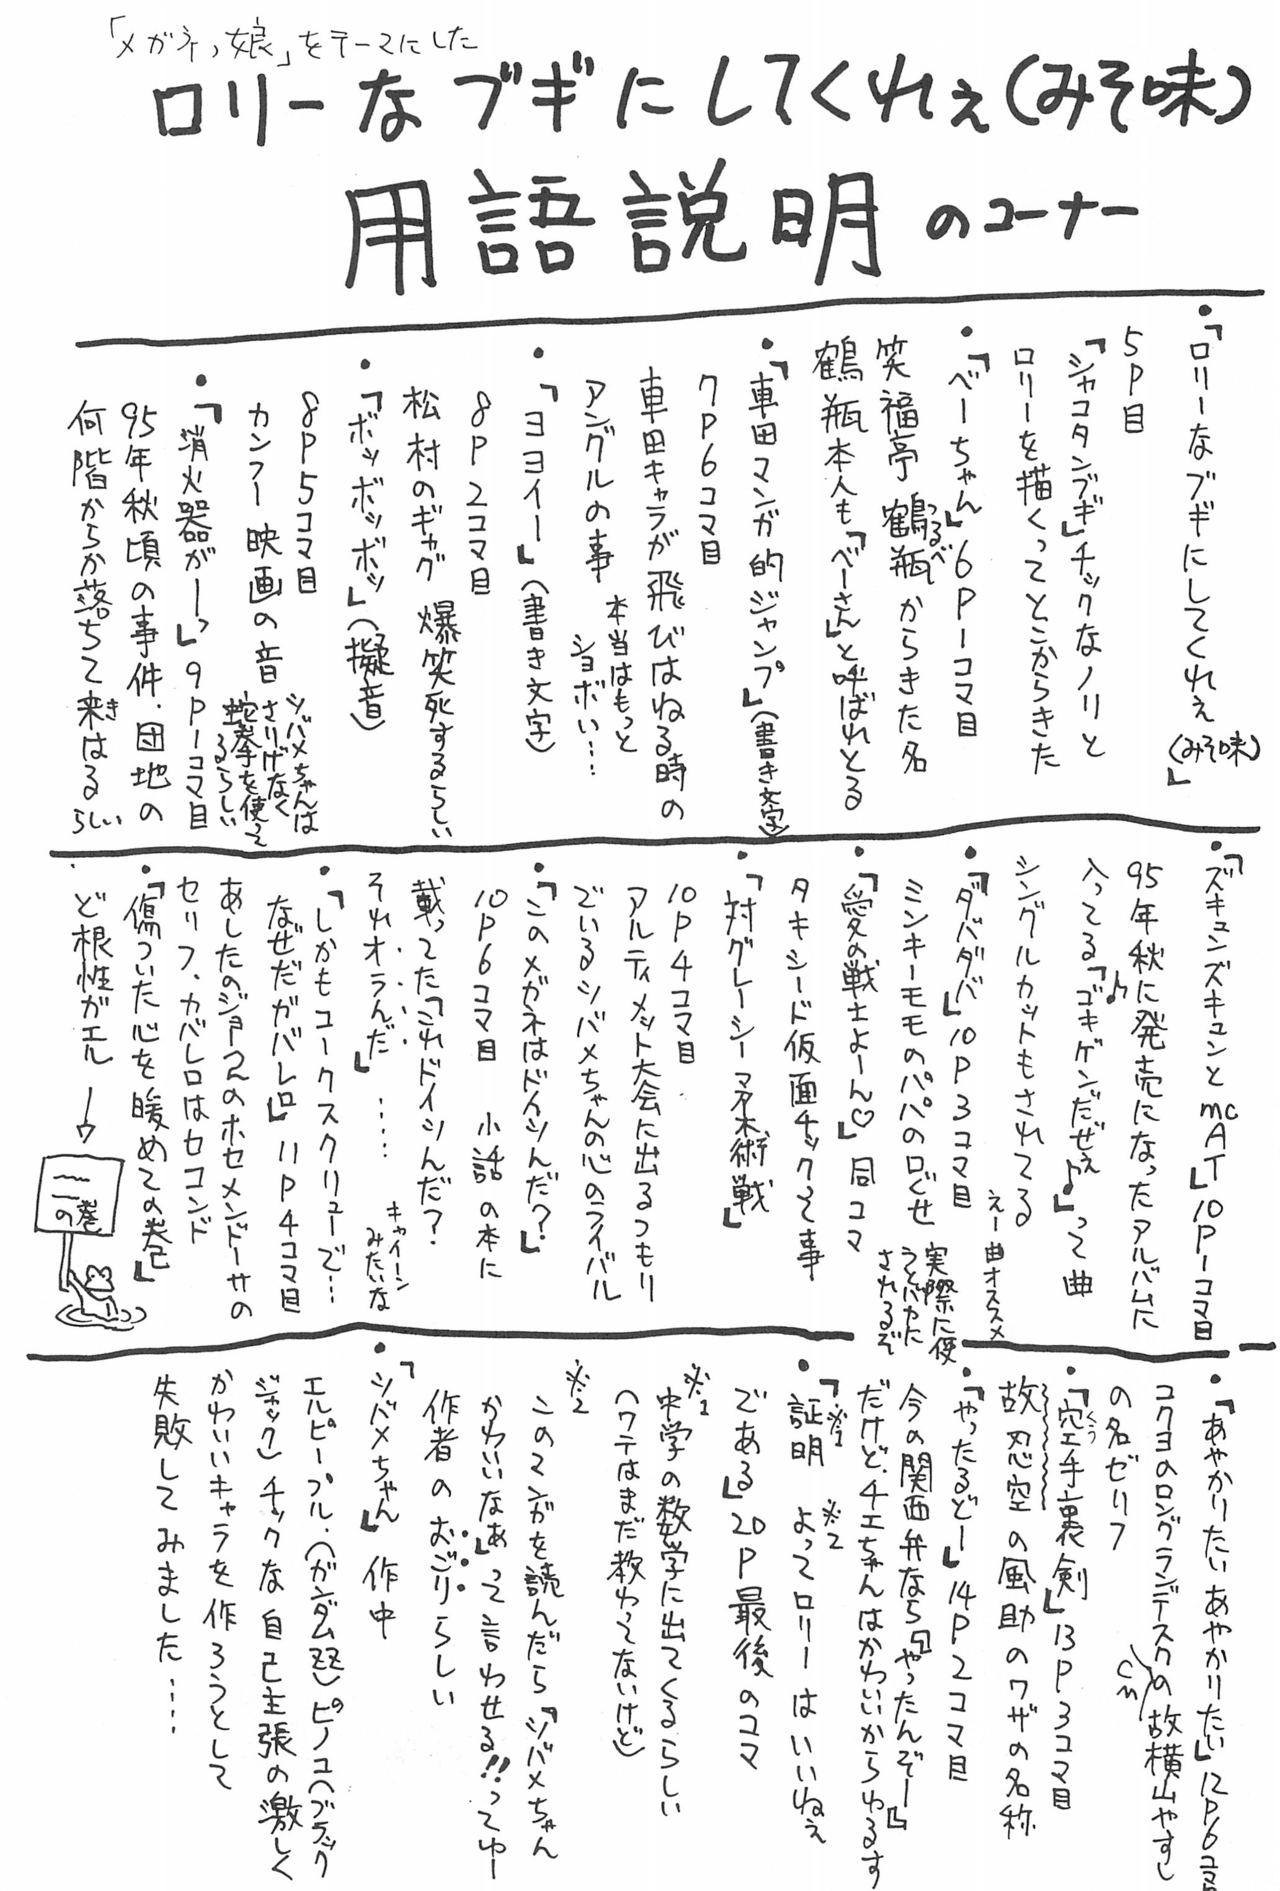 「メガネっ娘」をテーマにした
ロリーなブギにしてくれぇ(みそ味)
用語説明のコーナー
・「ロリーなブギにしてくれぇ(みそ味)」
5P目
「シャコタンブギ」チックなノリと
ロリーを描くってとこからきた
・「べーちゃん」6P1コマ目
笑福亭鶴瓶からきた名
つるべ
鶴瓶本人も「べーさん」と呼ばれとる
・「車田マンガ的ジャンプ」(書き文字)
7P6コマ目
車田キャラが飛びはねる時の
アングルの事
本当はもっと
ショボい…
・「ヨヨイー」(書き文字)
8P2コマ目
松村のギャグ 爆笑死するらしい
・「ボッボッボッ」(擬音)
8P5コマ目
カンフー映画の音
シバメちゃんは
さりげなく
蛇拳を使って
るらしい
・「消火器がーっ」9P1コマ目
95年秋頃の事件.団地の
何階からか落ちて来はるらしい
き
・「ズキュンズキュンとmcAT」10P1コマ目
95年秋に発売になったアルバムに
入ってる「♪ゴキゲンだぜぇ♪」って曲
シングルカットもされてる
えー曲オススメ
・「ダバダバ」10P3コマ目
ミンキーモモのパパの口ぐせ
実際に使
うとバカに
されるぞ
・「愛の戦士よーん♡」同コマ
タキシード仮面チックて事
・「対グレーシーマ木術戦」
10P4コマ目
アルティメット大会に出るつもり
でいるシバメちゃんの心のライバル
・「このメガネはドイツんだ?」
10P6コマ目 小話の本に
載ってた「これドイツんだ?
それオランだ」……
キャイーン
みたいな
・「しかもコークスクリューで…
なぜだガバレロ」11P4コマ目
あしたのジョー2のホセメンドーサの
セリフ.カバレロはセコンド
・「傷ついた心を暖めての巻」
ど根性ガエル→
一一の巻
・「あやかりたいあやかりたい」12P6コマ目
コクヨのロングランデスクの故横山やすし
CM
の名ゼリフ
・「空手裏剣」13P3コマ目
くう
故忍空の風助のワザの名称
・「やったるどー」14P2コマ目
今の関西弁なら「やったんぞー」
だけど.チエちゃんはかわいいからゆるす
・「証明※1 よって※2ロリーはいいねぇ
である」20P最後のコマ
※1
中学の数学に出てくるらしい
(ワテはまだ教わってないけど)
※2
このマンガを読んだら「シバメちゃん
かわいいなぁ」って言わせる!!ってゆー
作者のおごりらしい
・「シバメちゃん」作中
エルピープル.(ガンダムZZ)ピノコ(ブラック
ジャック)チックな自己主張の激しく
かわいいキャラを作ろうとして
失敗してみました……